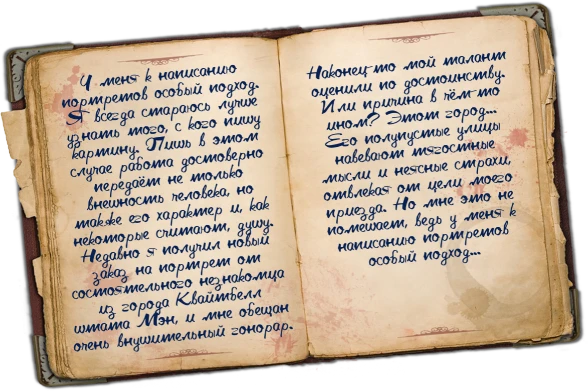 У меня к написанию
портретов особый подход.
Я всегда стараюсь лучше
узнать того, с кого пишу
картину. Лишь в этом
случае работа достоверно
передаёт не только
внешность человека, но
также его характер и, как
некоторые считают, душу.
Недавно я получил новый
заказ на портрет от
состоятельного незнакомца
из города Квайтбелл
штата Мэн, и мне обещан
очень внушительный гонорар.
Наконец-то мой талант
оценили по достоинству.
Или причина в чём-то
ином? Этот город...
Его полупустые улицы
навевают тягостные
мысли и неясные страхи,
отвлекая от цели моего
приезда. Но мне это не
помешает, ведь у меня к
написанию портретов
особый подход...